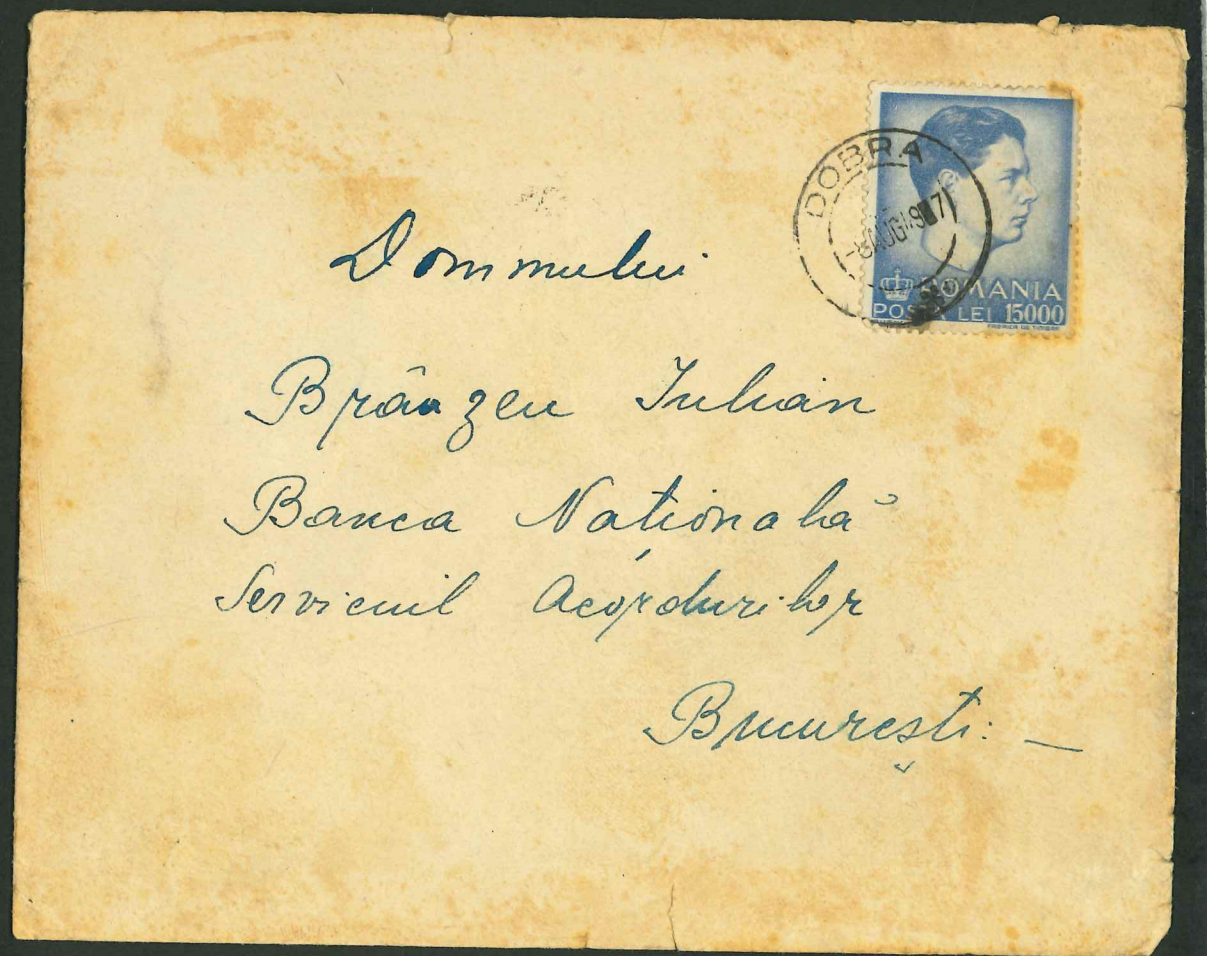 DOBRA
-8 AUG 947
ROMANIA
POSTA LEI 15000
Domnului
Brânzeu Iulian
Banca Națională
Serviciul Acordurilor
București: —